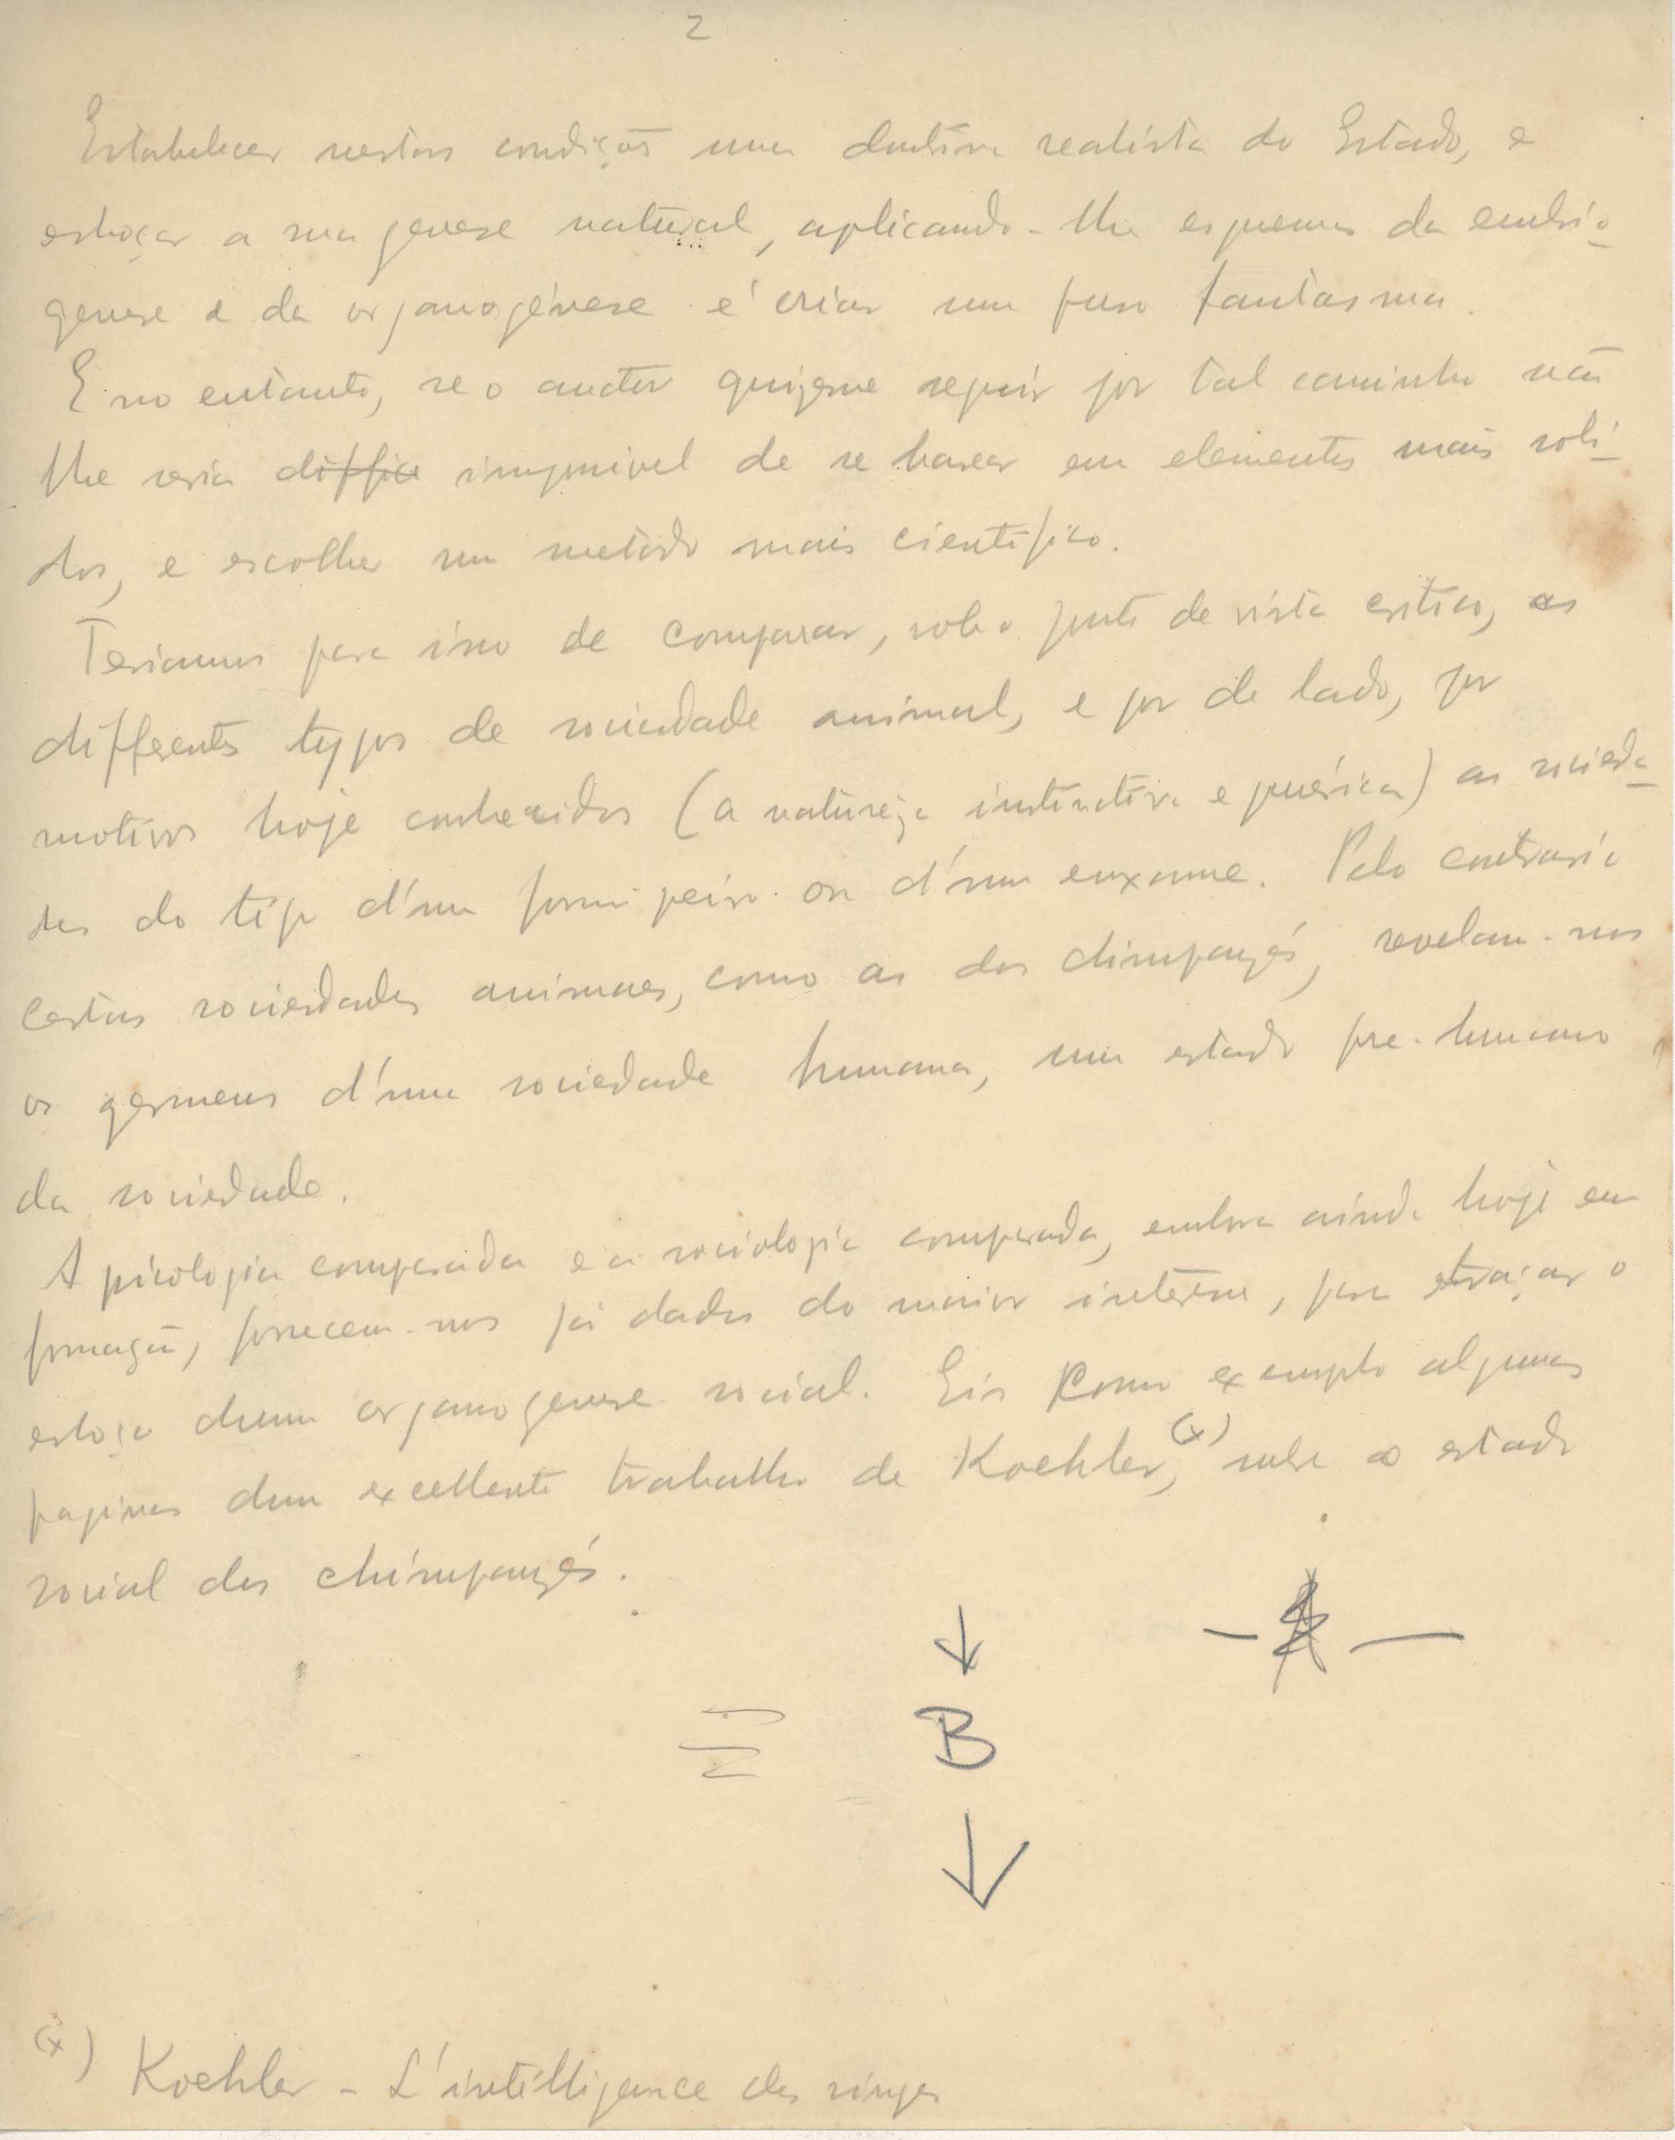 2
Estabelecer nestas condições uma doutrina realista do Estado, e
esboçar a sua genese natural, aplicando-lhe esquemas da embrio-
genese e da organogénese é criar um puro fantasma.
E no entanto, se o auctor quizesse seguir por tal caminho não
lhe seria diffici impossivel de se basear em elementos mais soli-
dos, e escolher um metodo mais cientifico.
Teriamos para isso de comparar, sob o ponto de vista critico, os
differentes typos de sociedade animal, e por de lado, por
motivos hoje conhecidos (a natureza instinctiva e generica) as socieda-
des do tipo d'um formigueiro ou d'um enxame. Pelo contrario
certas sociedades animaes, como as dos chimpanzés, revelam-nos
os germens d'uma sociedade humana, um estado pre-humano
da sociedade.
A psicologia comparada e a sociologia comparada, embora ainda hoje em
formação, fornecem-nos já dados do maior interesse, para traçar o
esboço duma organogenese social. Eis como exemplo algumas
paginas dum excellente trabalho de Koehler,(x) sobre o estado
social dos chimpanzés.
B
(x) Koehler - L'intelligence des singes